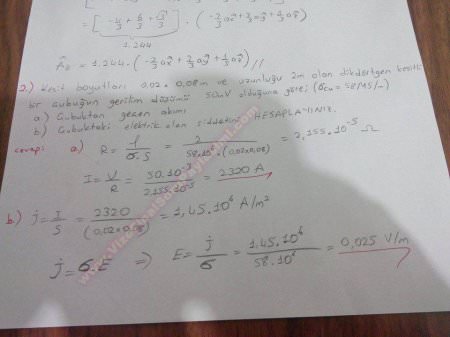 = [-4/3 + 6/3 + √3/3] . (-2/3 ax + 2/3 ay + 1/3 az)
1.244
= 1.244. (-2/3 ax + 2/3 ay + 1/3 az) //
2.) Kesit boyutları 0,02 x 0,08m ve uzunluğu 2m olan dikdörtgen kesitli
bir çubuğun gerilim düşümü 50mV olduğuna göre; (σcu = 58 MS/m)
a.) Çubuktan geçen akımı
b) Çubuktaki elektrik alan şiddetini HESAPLAYINIZ.
cevap: a) R = l/σ.S = 2/58.10^6.(0,02x0,08) = 2,155.10^-5 Ω
I = V/R = 50.10^-3/2,155.10^-5 = 2320 A
b.) j = I/S = 2320/(0,02x0,08) = 1,45.10^6 A/m²
j = σ.E ⇒ E = j/σ = 1,45.10^6/58.10^6 = 0,025 V/m